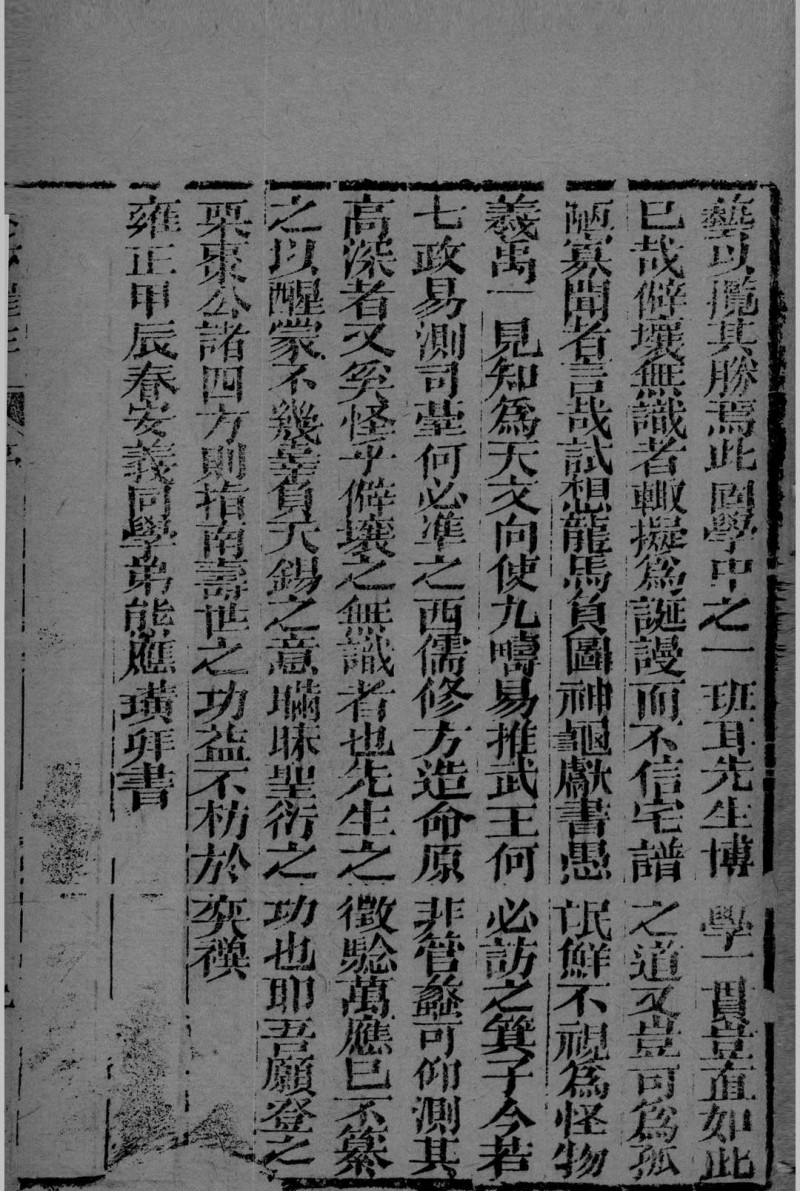 藝以攬其勝焉此國學中之一班耳先生博學一貫豈直如此
已哉僻壤無識者輙擬為誕謾而不信宅譜之道又豈可為孤
陋寡聞者言哉試想龍馬負圖神龜獻書愚氓鮮不視為怪物
羲禹一見知為天文向使九疇易推武王何必訪之箕子今若
七政易測司臺何必準之西儒修方造命原非管蠡可仰測其
高深者又奚怪乎僻壤之無識者也先生之徵驗萬應已不纂
之以醒蒙不幾辜負天錫之意瞞昧聖衍之功也耶吾願登之
栗棗公諸四方則指南壽世之功益不朽於奕禩
雍正甲辰春安義同學弟熊應璜拜書